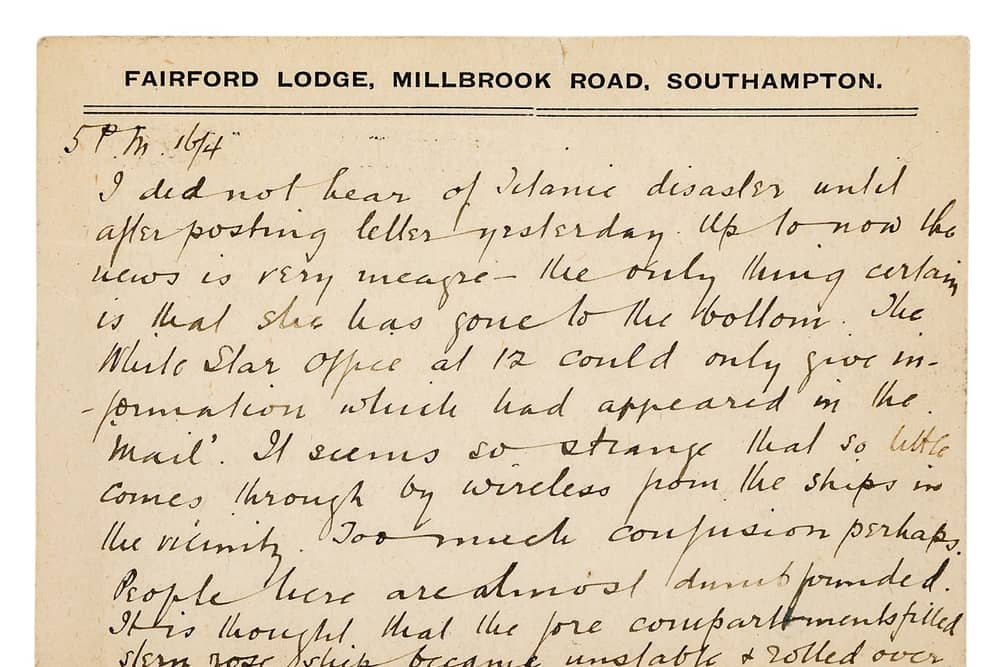 FAIRFORD LODGE, MILLBROOK ROAD, SOUTHAMPTON.
5 P.M. 16/4
I did not hear of Titanic disaster until
after posting letter yesterday. Up to now the
news is very meagre – the only thing certain
is that she has gone to the bottom. The
White Star Office at 12 could only give in-
-formation which had appeared in the
'Mail'. It seems so strange that so little
comes through by wireless from the ships in
the vicinity. Too much confusion perhaps.
People here are almost dumbfounded.
It is thought that the fore compartments filled
stern rose, ship became unstable & rolled over